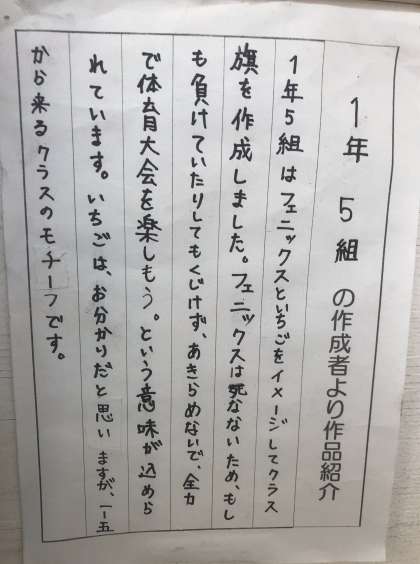 1年 5組 の作成者より作品紹介
1年5組はフェニックスといちごをイメージしてクラス
旗を作成しました。フェニックスは死なないため、もし
も負けていたりしてもくじけず、あきらめないで、全力
で体育大会を楽しもう。という意味が込めら
れています。いちごは、お分かりだと思いますが、一-五
から来るクラスのモチーフです。